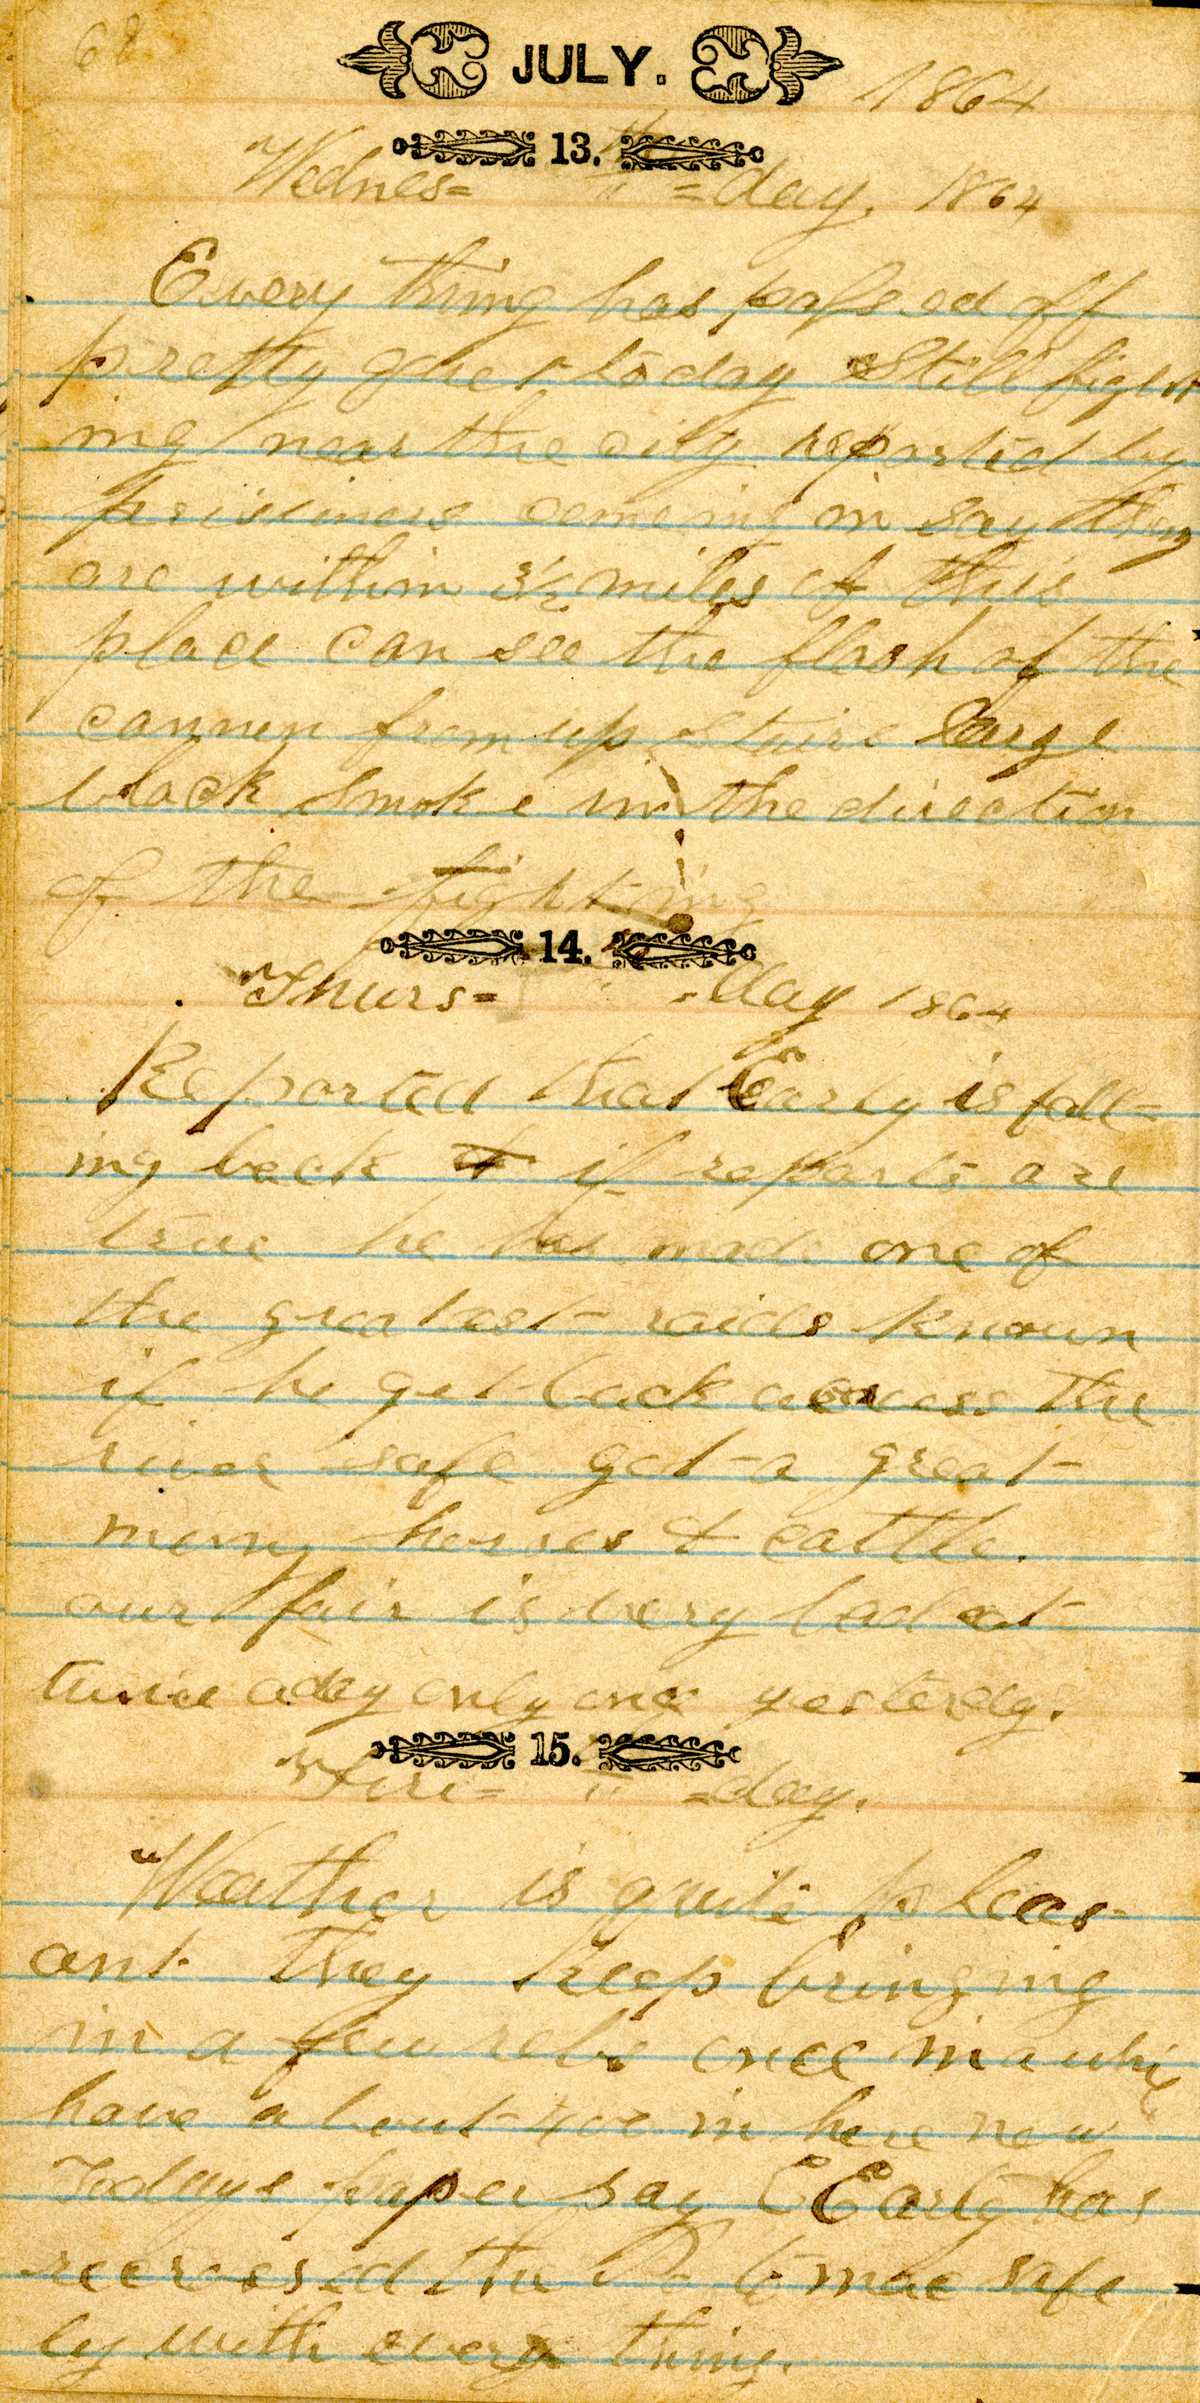 68
JULY. 1864
13. th
Wednes= " =day. 1864
Every thing has passed off
pretty quiet today Still fight
ing near the city reported by
prisiners comeing in say they
are within 3½ miles of this
place can see the flash of the
cannon from up Stairs large
black smoke in the direction
of the fighting
14.
Thurs= " =day 1864
Reported that Early is fall=
ing back if reports are
true he has made one of
the greatest raids known
if he get back across the
river safe got a great
meny horses & cattle.
our fair is very bad eat
twice a day only once yesterday.
15.
Fri= " =day.
Weather is quite pleas-
ant they keep bringing
in a few rebs once in a while
have about in here now
Todays paper say Early has
recrossed the Potomac safe
ly with every thing.